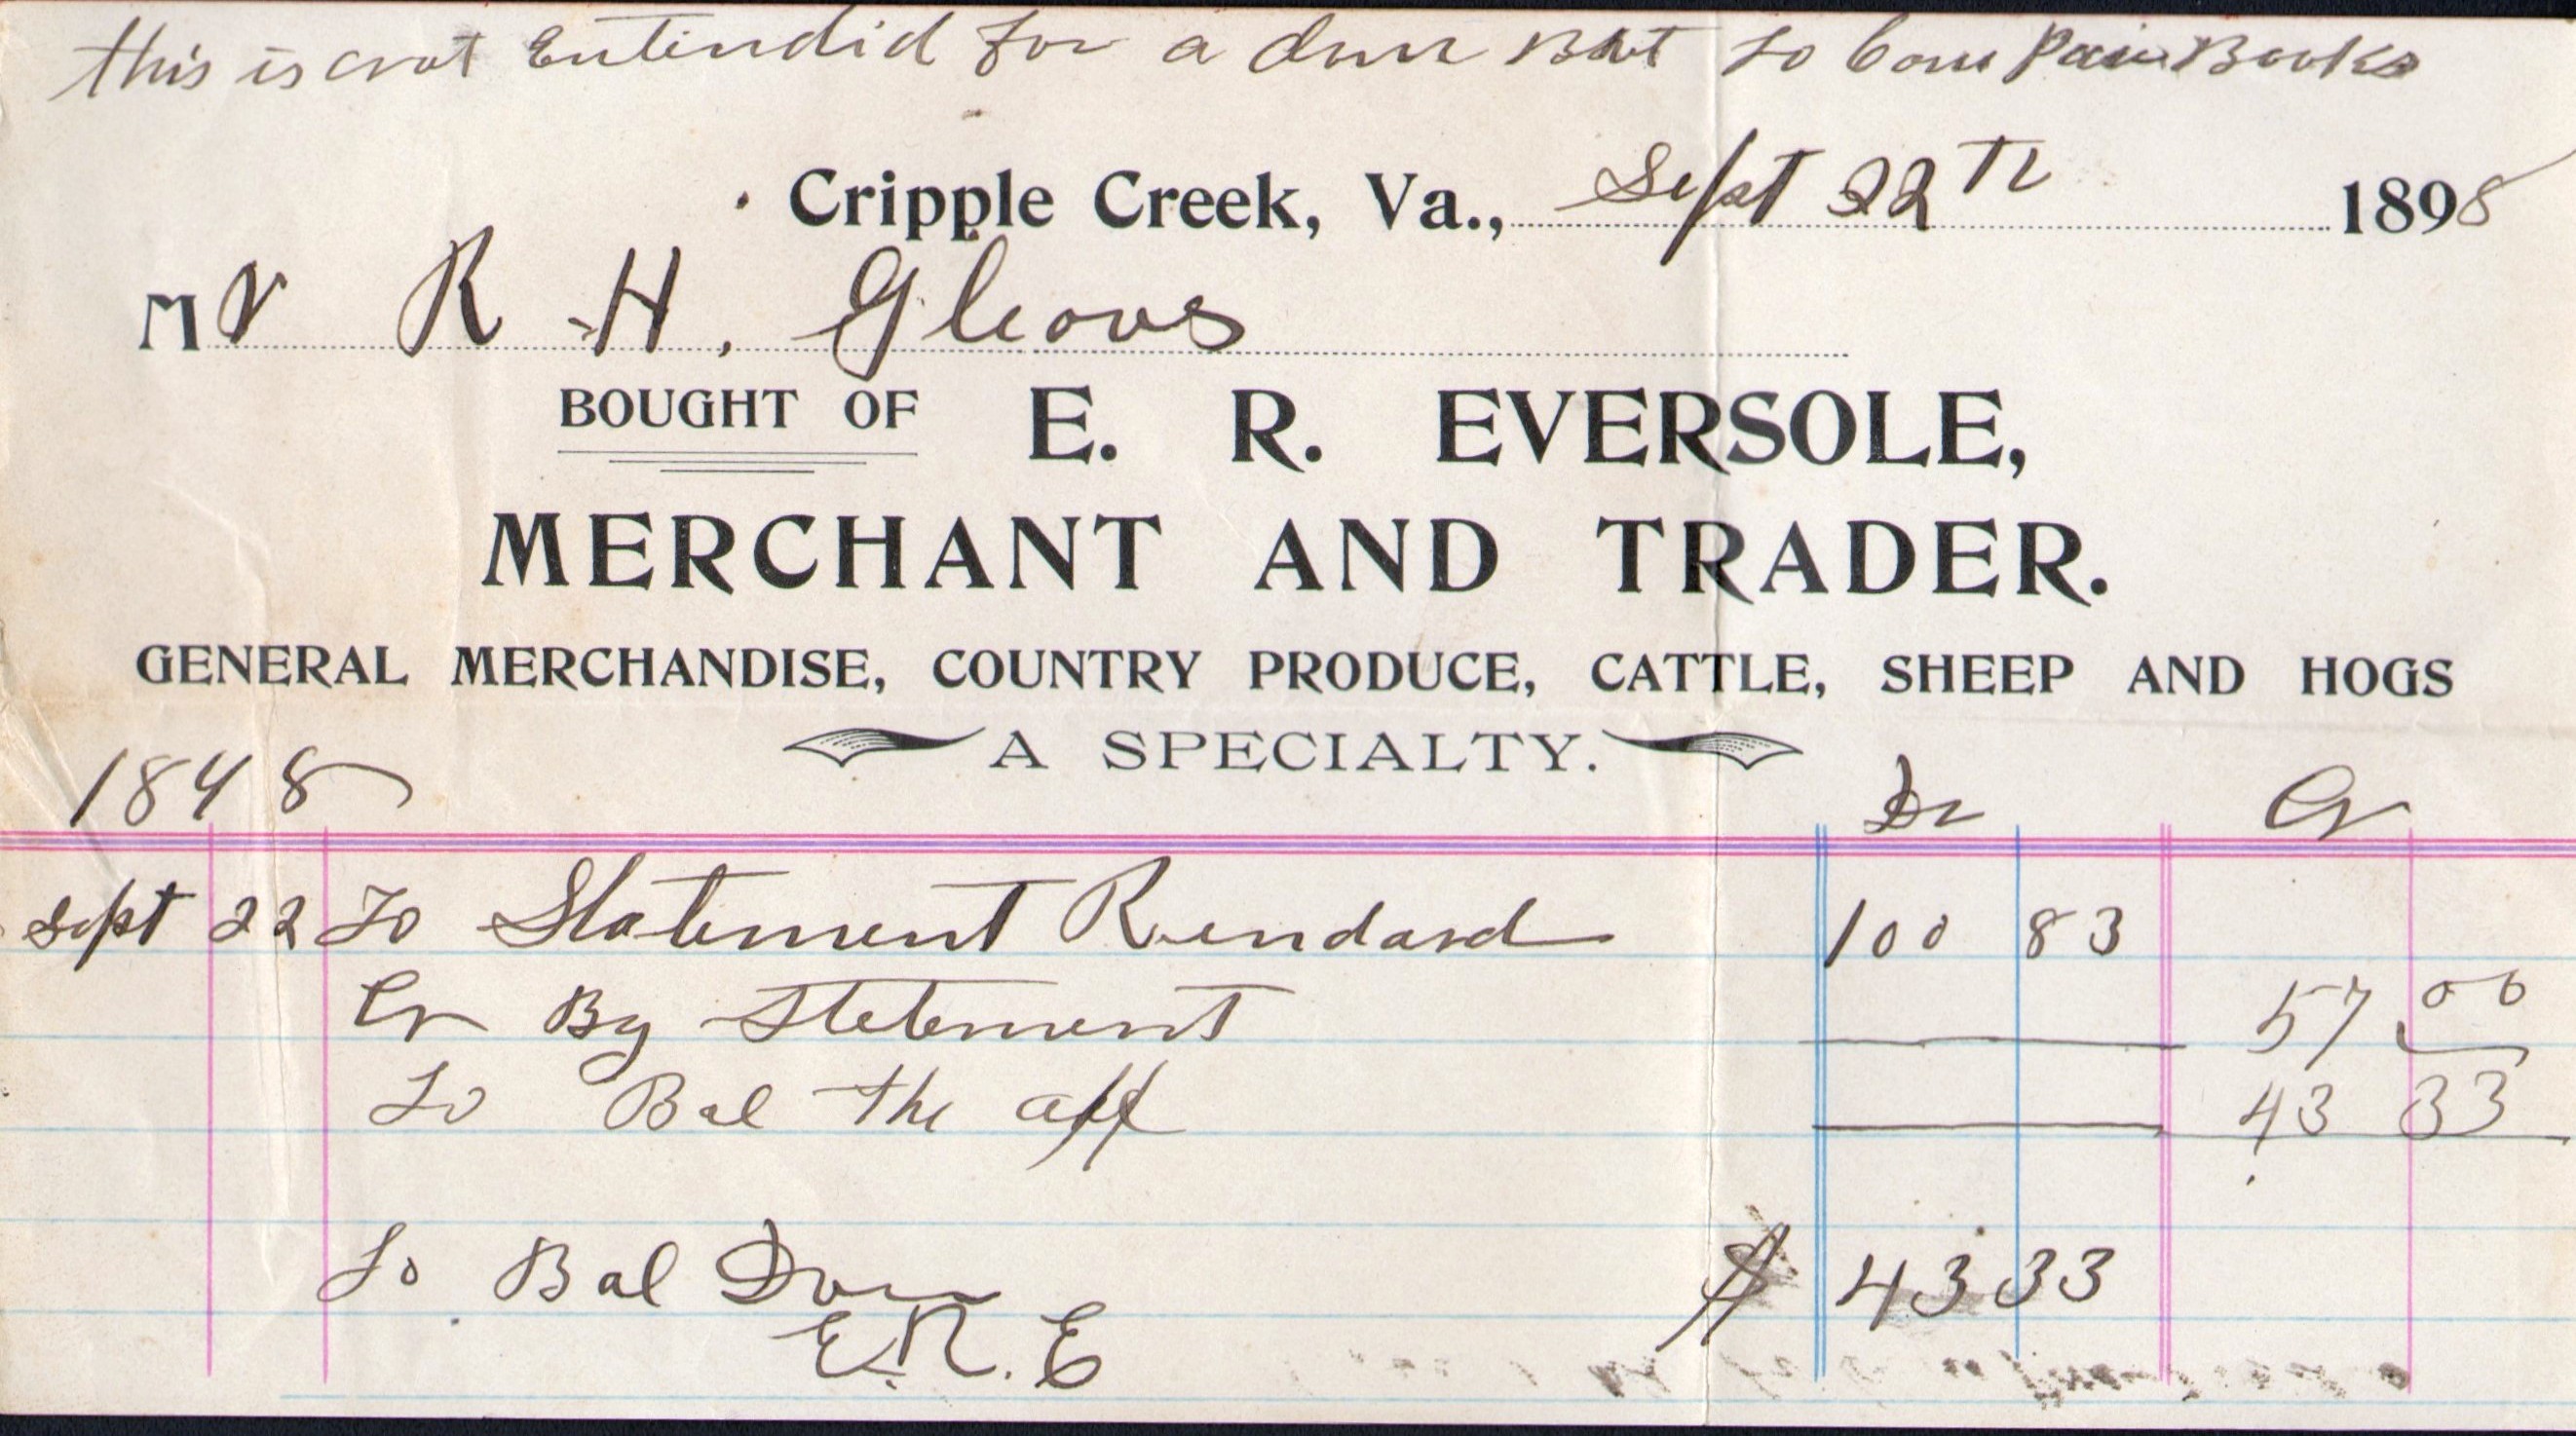 this is not Entindid for a dun But to Com Pair Books
Cripple Creek, Va., Sept 22th 1898
Mr R. H. Gleavs
BOUGHT OF E. R. EVERSOLE,
MERCHANT AND TRADER.
GENERAL MERCHANDISE, COUNTRY PRODUCE, CATTLE, SHEEP AND HOGS
A SPECIALTY.
1898 Dr Cr
Sept 22 To Statement Rendard 100 83
Cr By Statement 57 50
To Bal the aff 43 33
To Bal Due $ 43 33
E. R. E